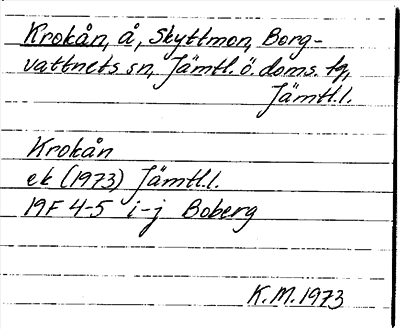 Krokån, å, Skyttmon, Borg-
vattnets sn, Jämtl. ö. doms. tg,
Jämtl.l.
Krokån
ek (1973) Jämtl.l.
19F 4-5 i-j Boberg
K.M. 1973